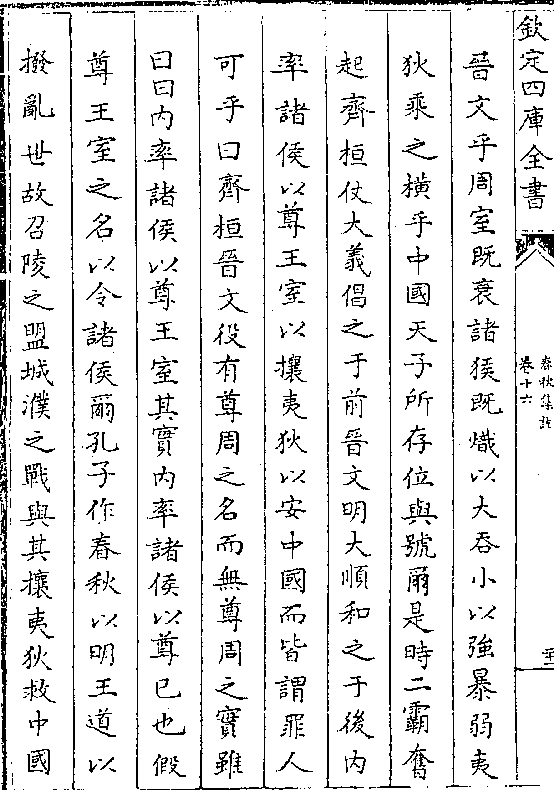 欽定四庫全書
春秋集註
卷十六
晉文乎周室既衰諸侯既熾以大吞小以強暴弱夷
狄乘之橫乎中國天子所存位與號爾是時二霸奮
起齊桓仗大義倡之于前晉文明大順和之于後内
率諸侯以尊王室以攘夷狄以安中國而皆謂罪人
可乎曰齊桓晉文役有尊周之名而無尊周之實雖
曰曰内率諸侯以尊王室其實内率諸侯以尊已也假
尊王室之名以令諸侯爾孔子作春秋以明王道以
撥亂世故召陵之盟城濮之戰與其攘夷狄救中國